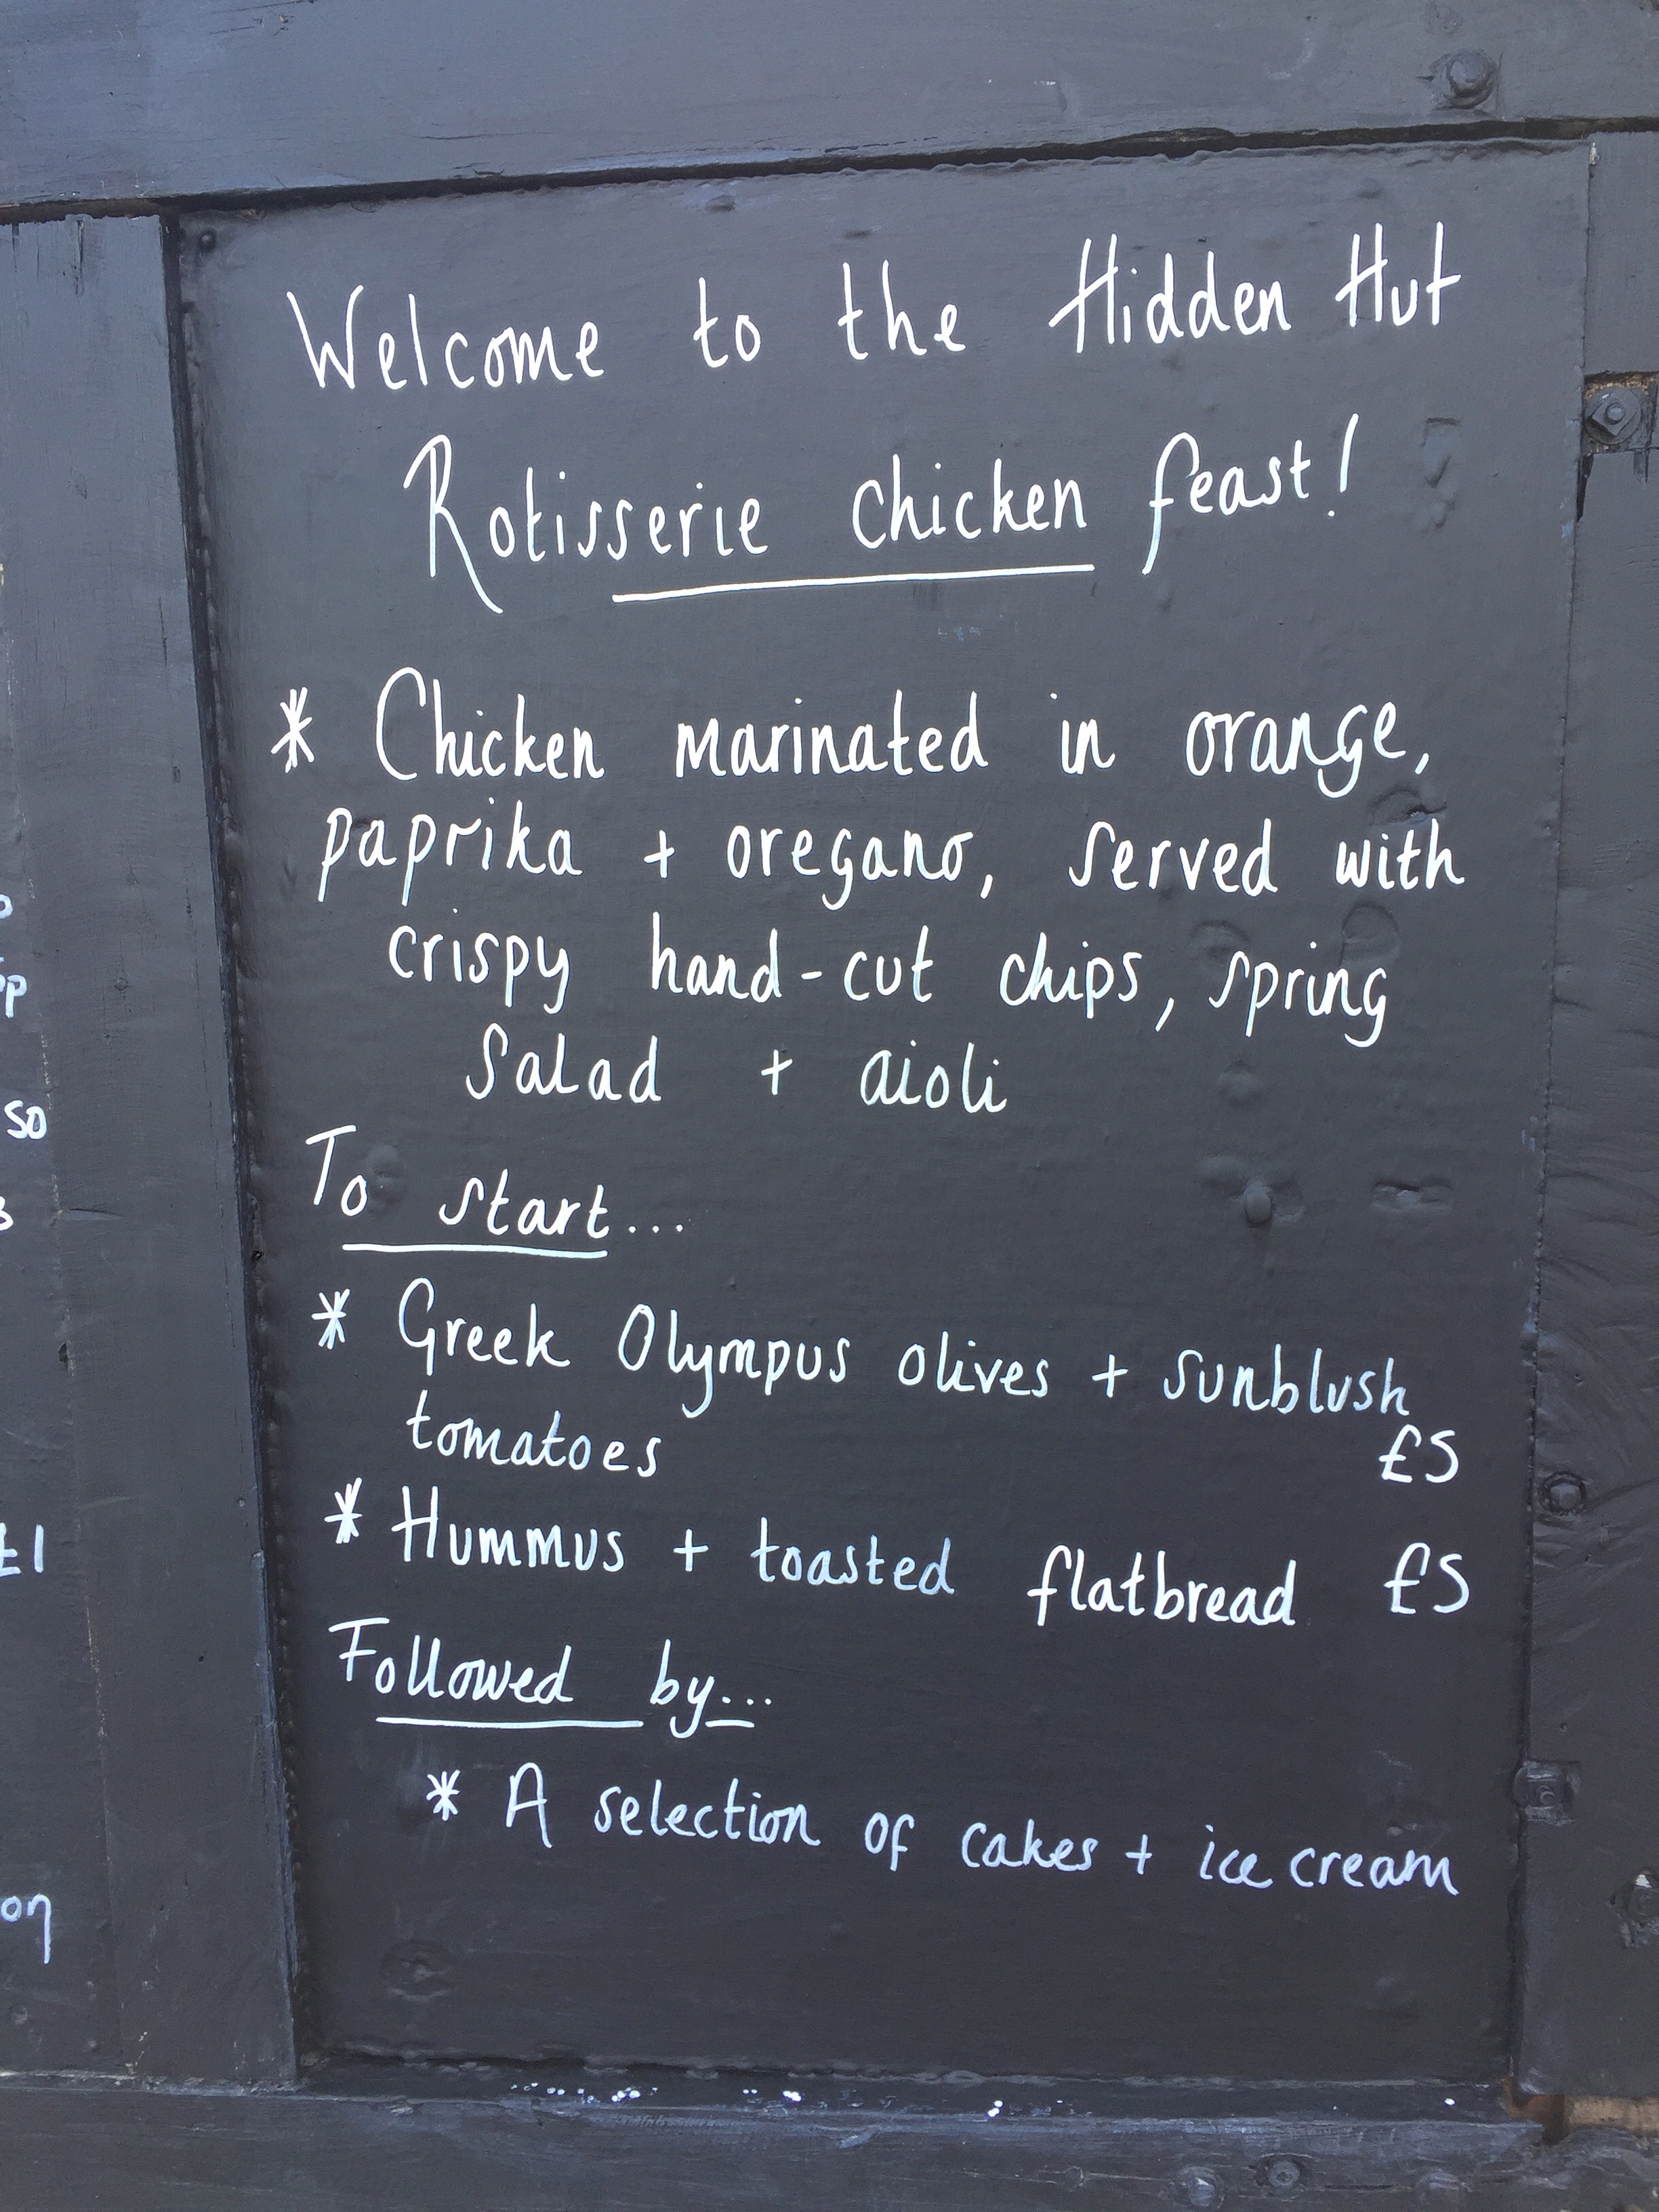 Welcome to the Hidden Hut
Rotisserie chicken feast!
* Chicken marinated in orange,
paprika + oregano, served with
crispy hand-cut chips, spring
Salad + aioli
To start...
* Greek Olympus olives + sunblush
tomatoes £5
* Hummus + toasted flatbread £5
Followed by...
* A selection of cakes + ice cream
so
£1
on